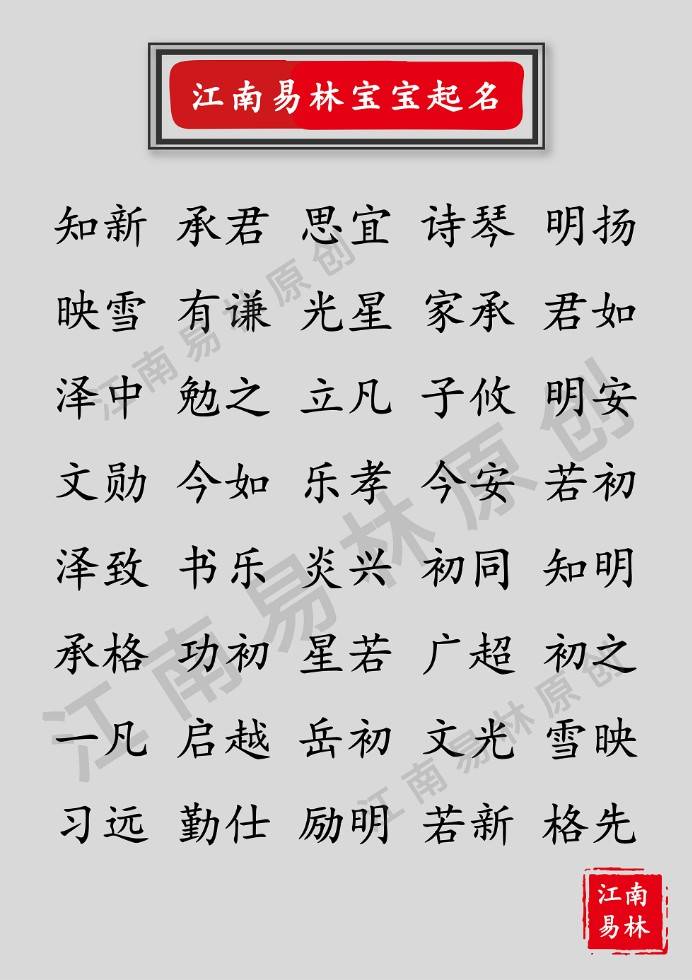 江南易林宝宝起名
知新 承君 思宜 诗琴 明扬
映雪 有谦 光星 家承 君如
泽中 勉之 立凡 子攸 明安
文勋 今如 乐孝 今安 若初
泽致 书乐 炎兴 初同 知明
承格 功初 星若 广超 初之
一凡 启越 岳初 文光 雪映
习远 勤仕 励明 若新 格先
江南易林原创
江南易林原创
江南易林原创
江南
易林